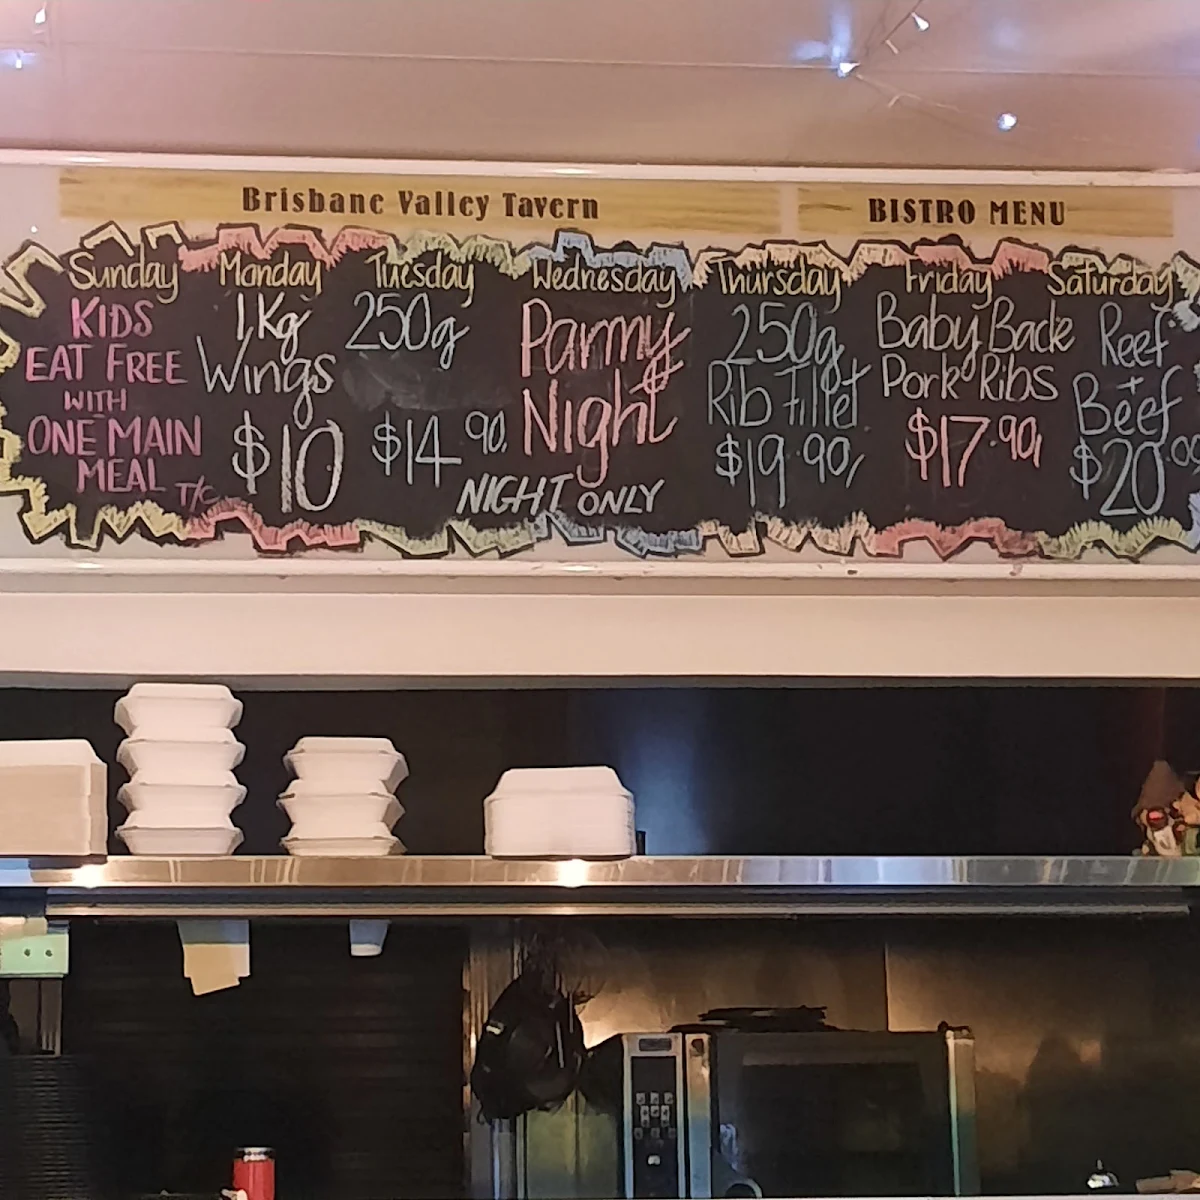 Brisbane Valley Tavern
BISTRO MENU
Sunday
KIDS
EAT FREE
WITH
ONE MAIN
MEAL T/C
Monday
1Kg
Wings
$10
Tuesday
250g
$14.90
Wednesday
Parmy
Night
NIGHT ONLY
Thursday
250g
Rib Fillet
$19.90
Friday
Baby Back
Pork Ribs
$17.90
Saturday
Reef
+
Beef
$20.00